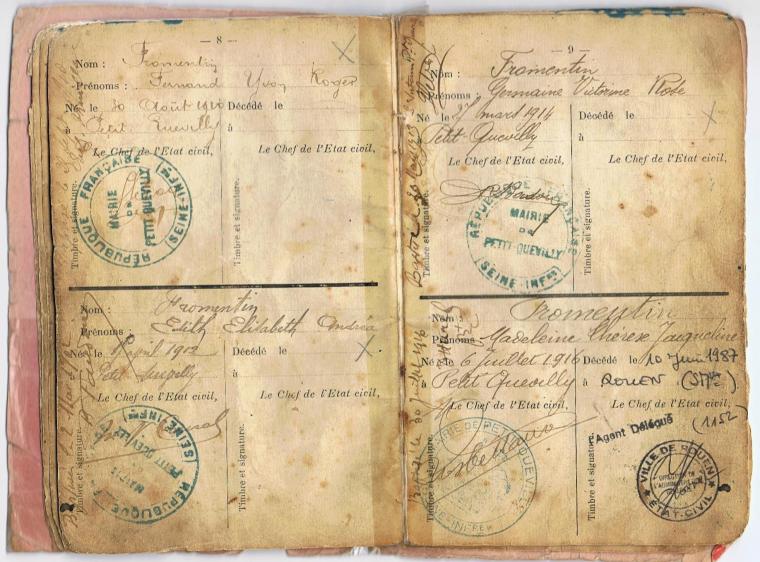 — 8 —
Nom : Fromentin
Prénoms : Fernand Yvon Roger
Né le 30 Août 1910 Décédé le
à Petit Quevilly à
Le Chef de l'Etat civil, Le Chef de l'Etat civil,
RÉPUBLIQUE FRANÇAISE
MAIRIE
DE
PETIT-QUEVILLY
(SEINE-INFRE)
Timbre et signature. Timbre et signature.
Nom : Fromentin
Prénoms : Edith Elisabeth Andréa
Née le avril 1912 Décédé le
Petit Quevilly à
Le Chef de l'Etat civil, Le Chef de l'Etat civil,
RÉPUBLIQUE
MAIRIE
PETIT-QUEVILLY
(SEINE-INFRE)
Timbre et signature. Timbre et signature.
— 9 —
Nom : Fromentin
Prénoms : Germaine Victorine Rose
Né le 27 mars 1914 Décédé le
Petit-Quevilly à
Le Chef de l'Etat civil, Le Chef de l'Etat civil,
RÉPUBLIQUE FRANÇAISE
MAIRIE
DE
PETIT-QUEVILLY
(SEINE-INFRE)
Timbre et signature. Timbre et signature.
Nom : Fromentin
Prénoms : Madeleine Thérèse Jacqueline
Née le 6 juillet 1916 Décédé le 10 Juin 1987
à Petit Quevilly à ROUEN (S.Mme)
Le Chef de l'Etat civil, Le Chef de l'Etat civil,
(1152)
L'Agent Délégué
MAIRIE DE PETIT-QUEVILLY
SEINE-INFRE
VILLE DE ROUEN
ÉTAT-CIVIL
Timbre et signature. Timbre et signature.